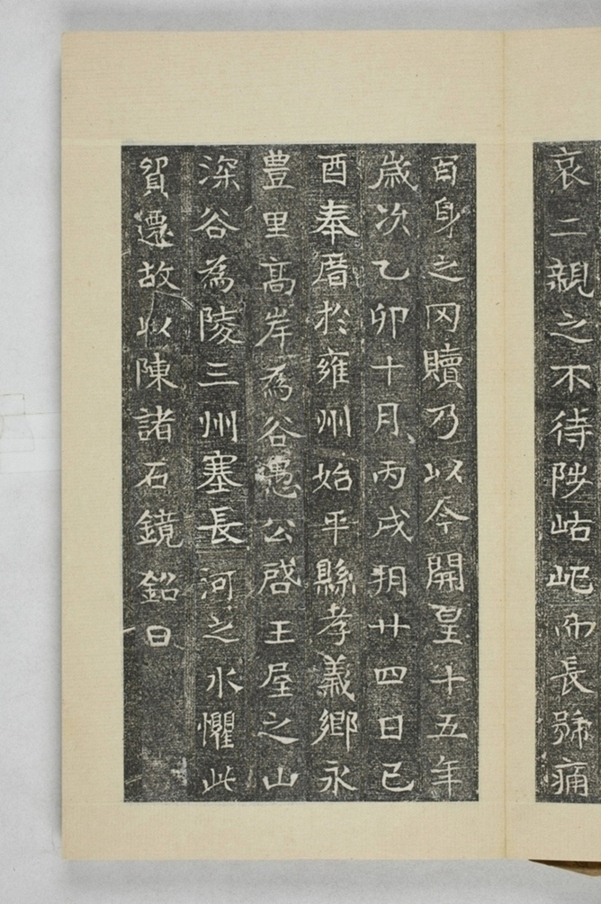 哀二親之不待陟岵屺而長號痛
百身之罔贖乃以今開皇十五年
歲次乙卯十月丙戌朔廿四日己
酉奉厝於雍州始平縣孝義鄉永
豊里高岸為谷愚公啓王屋之山
深谷為陵三州塞長河之水懼此
貿遷故以陳諸石鏡銘曰